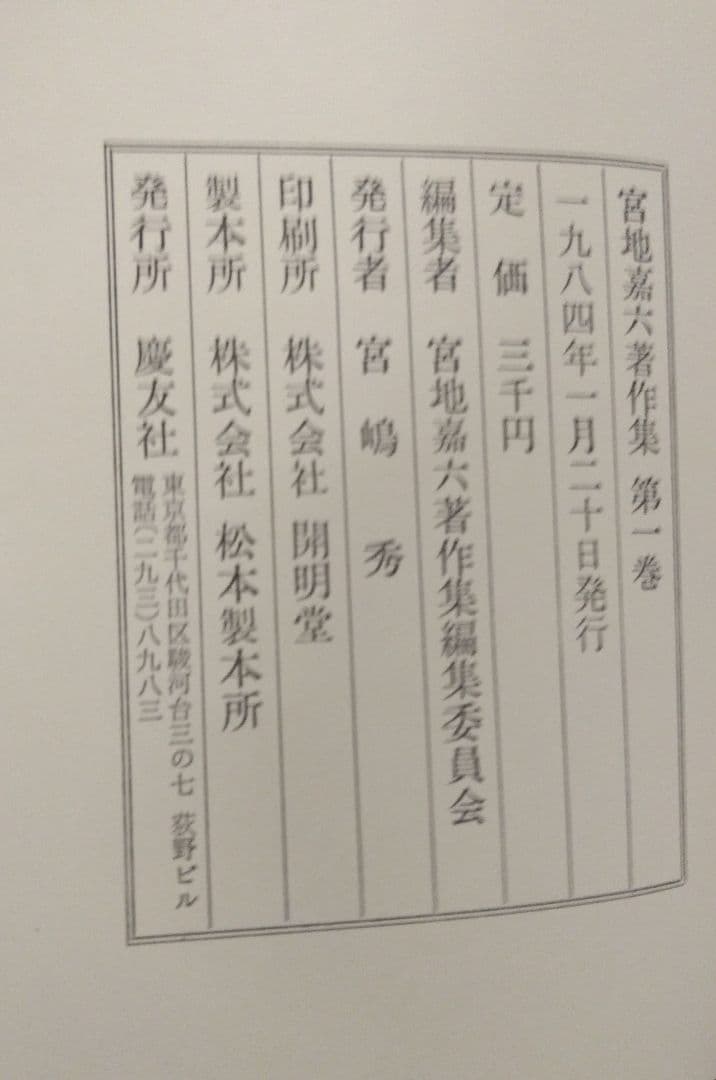 宮地嘉六著作集 第一巻
一九八四年一月二十日発行
定価 三千円
編集者 宮地嘉六著作集編集委員会
発行者 宮嶋秀
印刷所 株式会社 開明堂
製本所 株式会社 松本製本所
発行所 慶友社
東京都千代田区駿河台三の七 荻野ビル
電話(二九三)八九八三